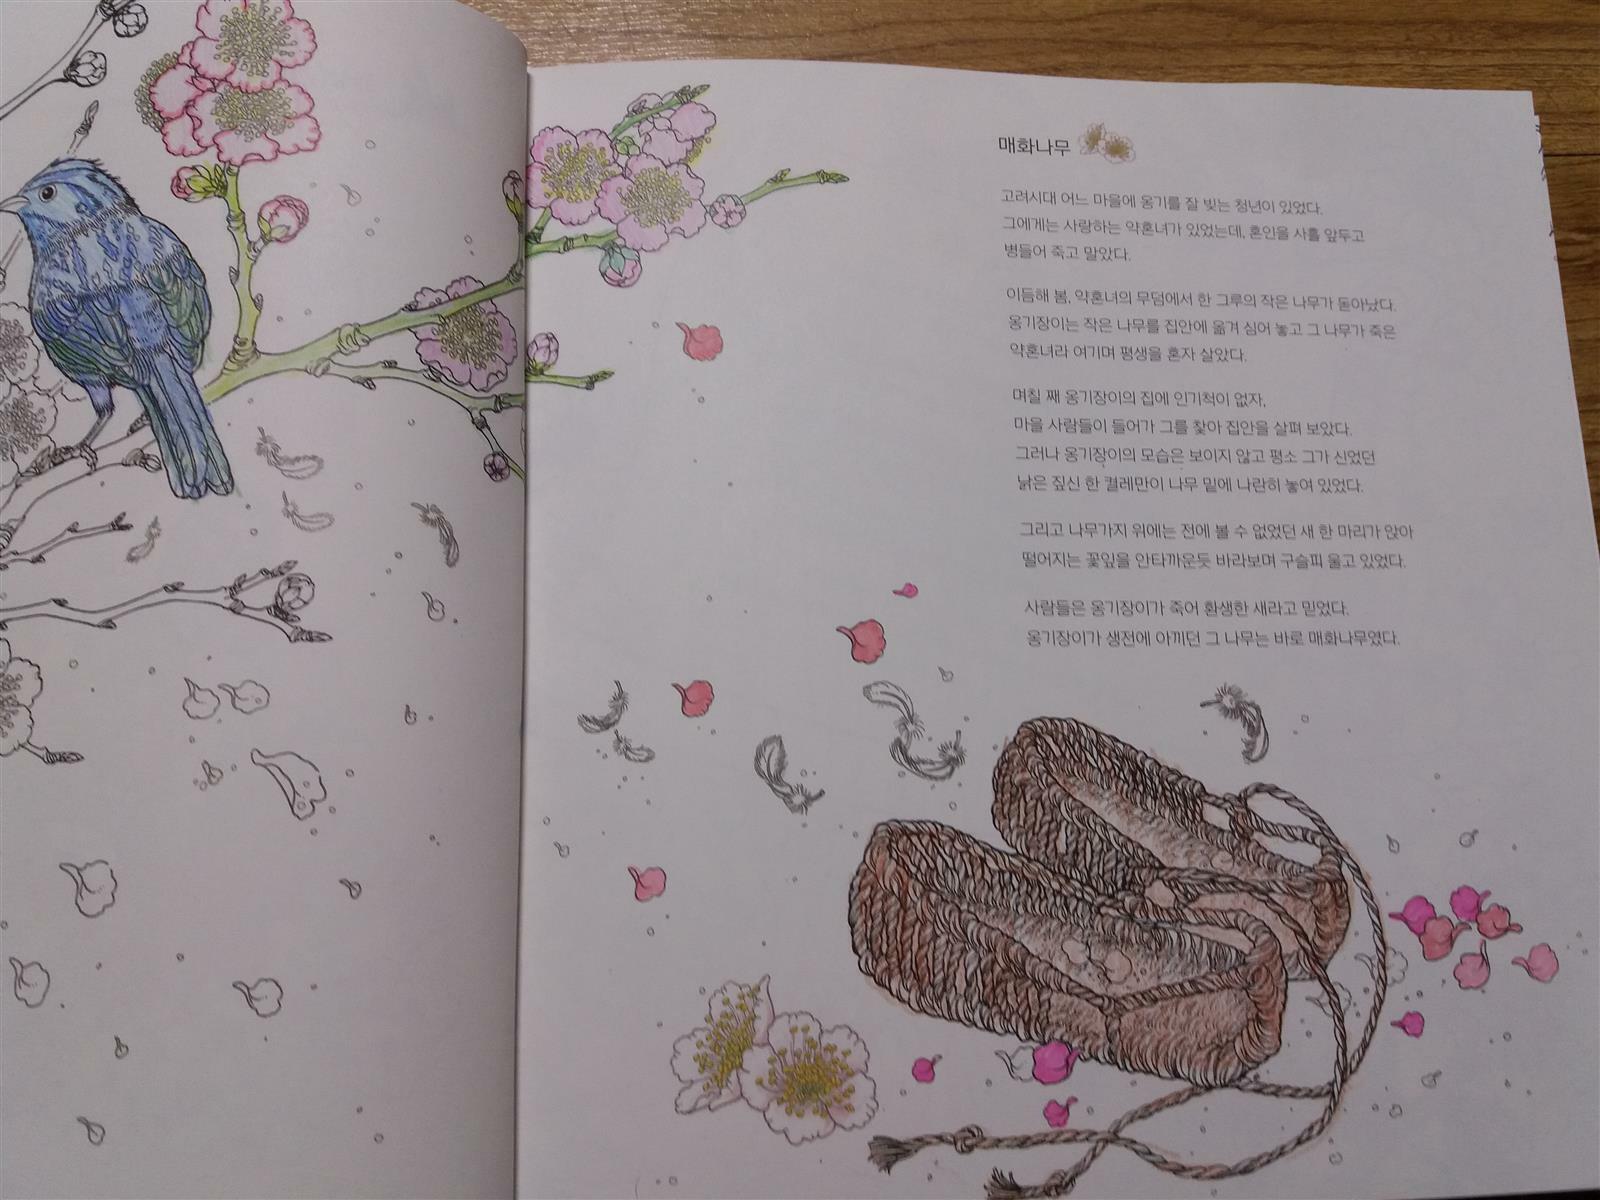 매화나무
고려시대 어느 마을에 옹기를 잘 빚는 청년이 있었다.
그에게는 사랑하는 약혼녀가 있었는데, 혼인을 사흘 앞두고
병들어 죽고 말았다.
이듬해 봄, 약혼녀의 무덤에서 한 그루의 작은 나무가 돋아났다.
옹기장이는 작은 나무를 집안에 옮겨 심어 놓고 그 나무가 죽은
약혼녀라 여기며 평생을 혼자 살았다.
며칠 째 옹기장이의 집에 인기척이 없자,
마을 사람들이 들어가 그를 찾아 집안을 살펴 보았다.
그러나 옹기장이의 모습은 보이지 않고 평소 그가 신었던
낡은 짚신 한 켤레만이 나무 밑에 나란히 놓여 있었다.
그리고 나무가지 위에는 전에 볼 수 없었던 새 한 마리가 앉아
떨어지는 꽃잎을 안타까운듯 바라보며 구슬피 울고 있었다.
사람들은 옹기장이가 죽어 환생한 새라고 믿었다.
옹기장이가 생전에 아끼던 그 나무는 바로 매화나무였다.